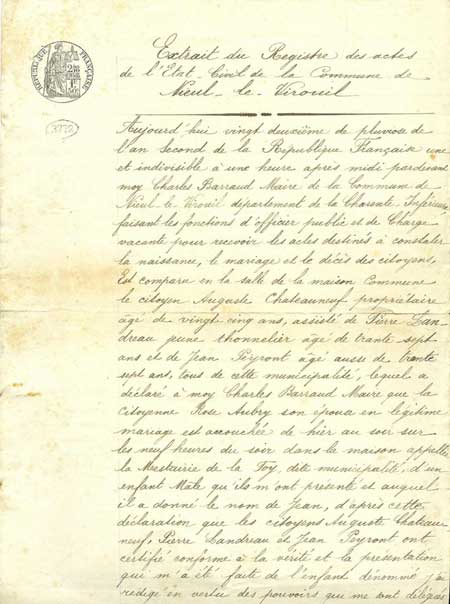 RÉPUBLIQUE FRANÇAISE
Extrait du Registre des actes
de l'Etat-Civil de la Commune de
Nieul-le-Virouil
Aujourd'hui vingt deuxième de pluviose de
l'an Second de la République Française une
et indivisible à une heure après midi pardevant
moy Charles Barraud Maire de la Commune de
Nieul-le-Virouil département de la Charente Inférieure
faisant les fonctions d'officier public et de Charge
vacante pour recevoir les actes destinés à constater
la naissance, le mariage et le décès des citoyens,
Est comparu en la salle de la maison Commune
le citoyen Auguste Chateauneuf propriétaire
âgé de vingt cinq ans, assisté de Pierre Lan-
dreau jeune thonnelier âgé de trante sept
ans et de Jean Peyront âgé ausse de trante
sept ans, tous de cette municipalité, lequel a
déclaré à moy Charles Barraud Maire que la
Citoyenne Rose Aubry son épouse en légitime
mariage est accouchée de hier au soir sur
les neuf heures du soir dans la maison appellée
la Mestairie de la Foy, dite municipalité, d'un
enfant Mâle qu'ils m'ont présenté et auquel
il a donné le nom de Jean, d'après cette
déclaration que les citoyens Auguste Chateau-
neuf, Pierre Landreau et Jean Peyront ont
certifié conforme à la vérité et la présentation
qui m'a été faite de l'enfant dénommé j'ai
rédigé en vertu des pouvoirs qui me sont délégués